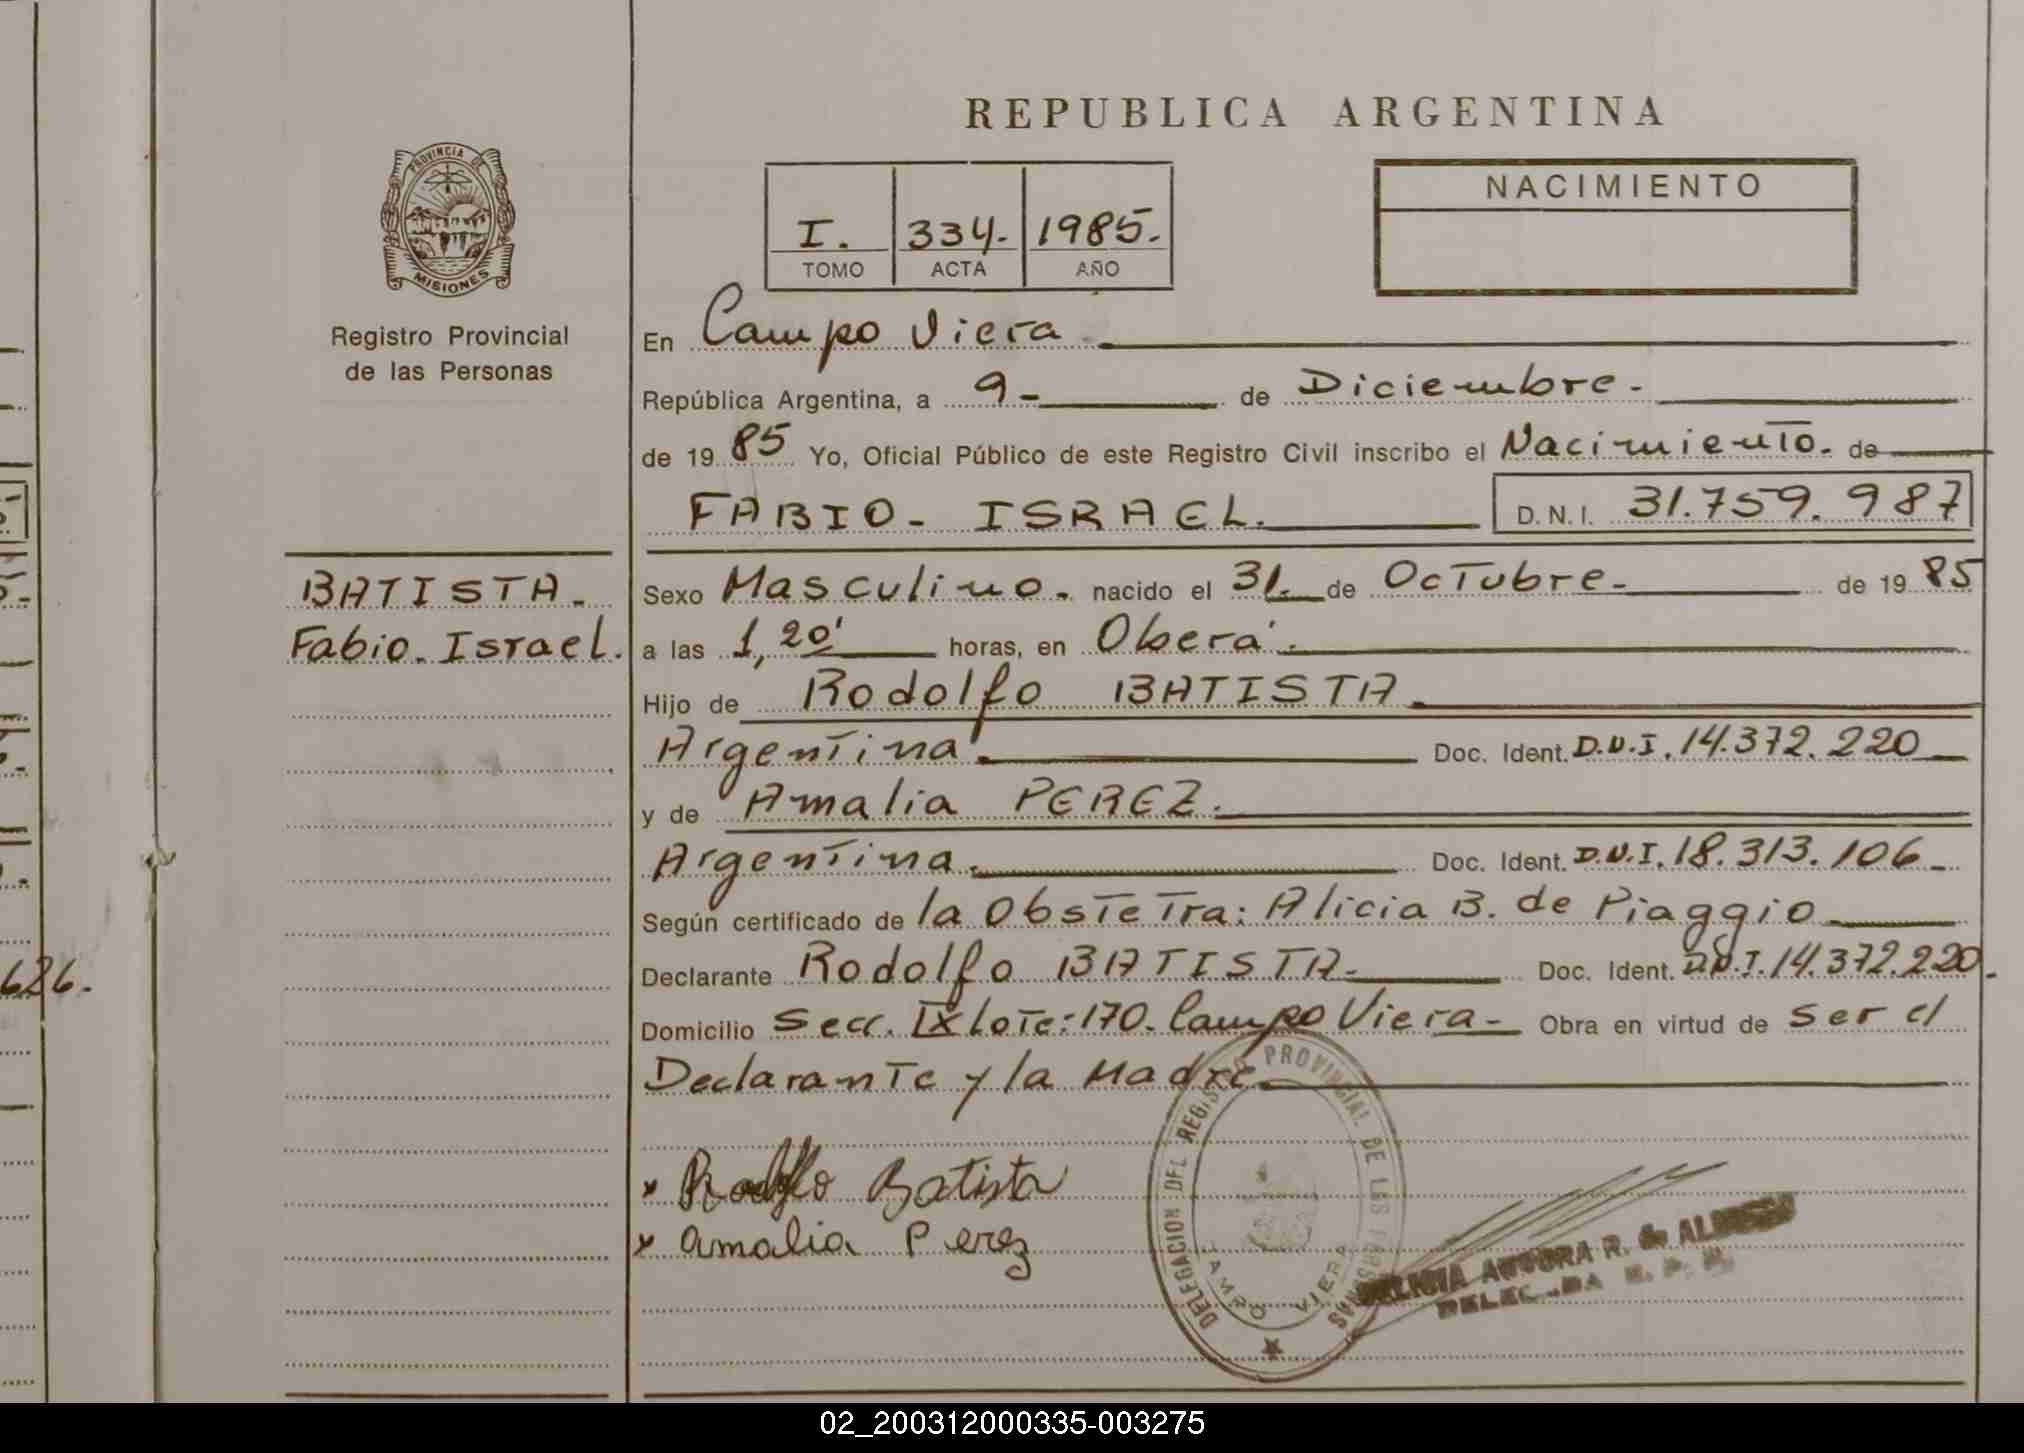 REPUBLICA ARGENTINA
PROVINCIA DE
MISIONES
Registro Provincial
de las Personas
I. 334. 1985.
TOMO ACTA AÑO
NACIMIENTO
En Campo Viera
República Argentina, a 9- de Diciembre.-
de 1985 Yo, Oficial Público de este Registro Civil inscribo el Nacimiento. de
FABIO- ISRAEL. D.N.I. 31.759.987
BATISTA.
Fabio. Israel.
Sexo Masculino. nacido el 31. de Octubre.- de 1985
a las 1,20' horas, en Oberá.
Hijo de Rodolfo BATISTA
Argentina. Doc. Ident. D.N.I. 14.372.220
y de Amalia PEREZ.
Argentina. Doc. Ident. D.N.I. 18.313.106-
Según certificado de la Obstetra: Alicia B. de Piaggio
Declarante Rodolfo BATISTA.- Doc. Ident. D.N.I. 14.372.220.-
Domicilio Secc. IX Lote: 170. Campo Viera- Obra en virtud de ser el
Declarante y la Madre
x Rodolfo Batista
x Amalia Perez
DELEGACION DEL REGISTRO PROVINCIAL DE LAS PERSONAS
CAMPO VIERA
AURORA R. de
626.
02_200312000335-003275